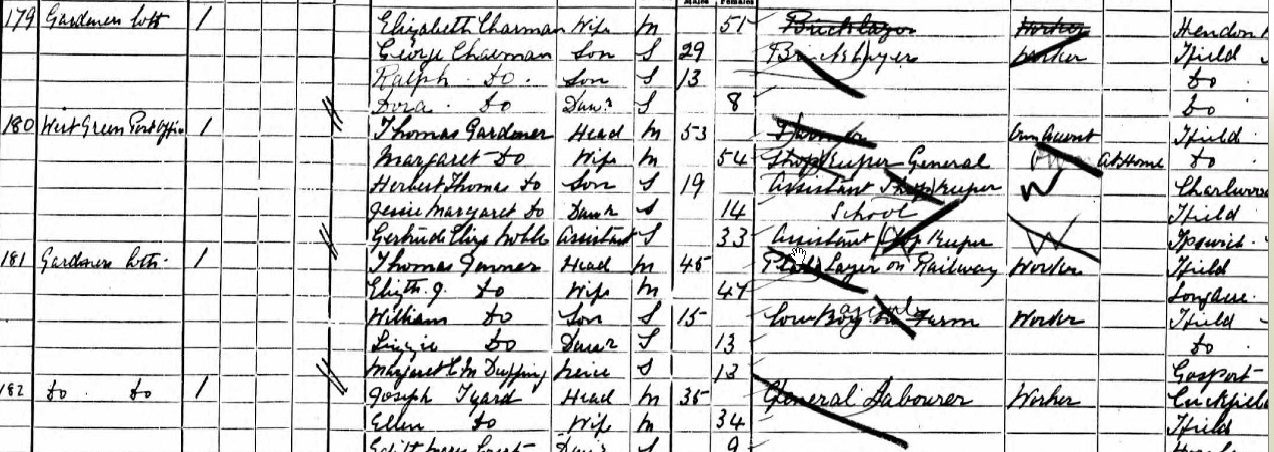 Males Females
179 Gardeners Cotts 1 Elizabeth Charman Wife M 51 Bricklayer Worker Hendon
George Charman Son S 29 Bricklayer Worker Ifield
Ralph do Son S 13 do
Dora do Daur S 8 do
180 West Green Post Office 1 Thomas Gardener Head M 53 Own Account Ifield
Margaret do Wife M 54 Shop Keeper General At Home do
Herbert Thomas do Son S 19 Assistant Shop Keeper W Charlwood
Jessie Margaret do Daur S 14 School Ifield
Gertrude Eliza Noble Assistant S 33 Assistant Shop Keeper W Ipswich
181 Gardeners Cotts 1 Thomas Head M 45 Plate Layer on Railway Worker Ifield
Elizth. J. do Wife M 47
William do Son S 15 Cow Boy on Farm Worker Ifield
Lizzie do Daur S 13 do
Margaret E. M. Neice S 13 Gosport
182 do do 1 Joseph Head M 35 General Labourer Worker Cuckfield
Ellen do Wife M 34 Ifield
Edith Mary 9